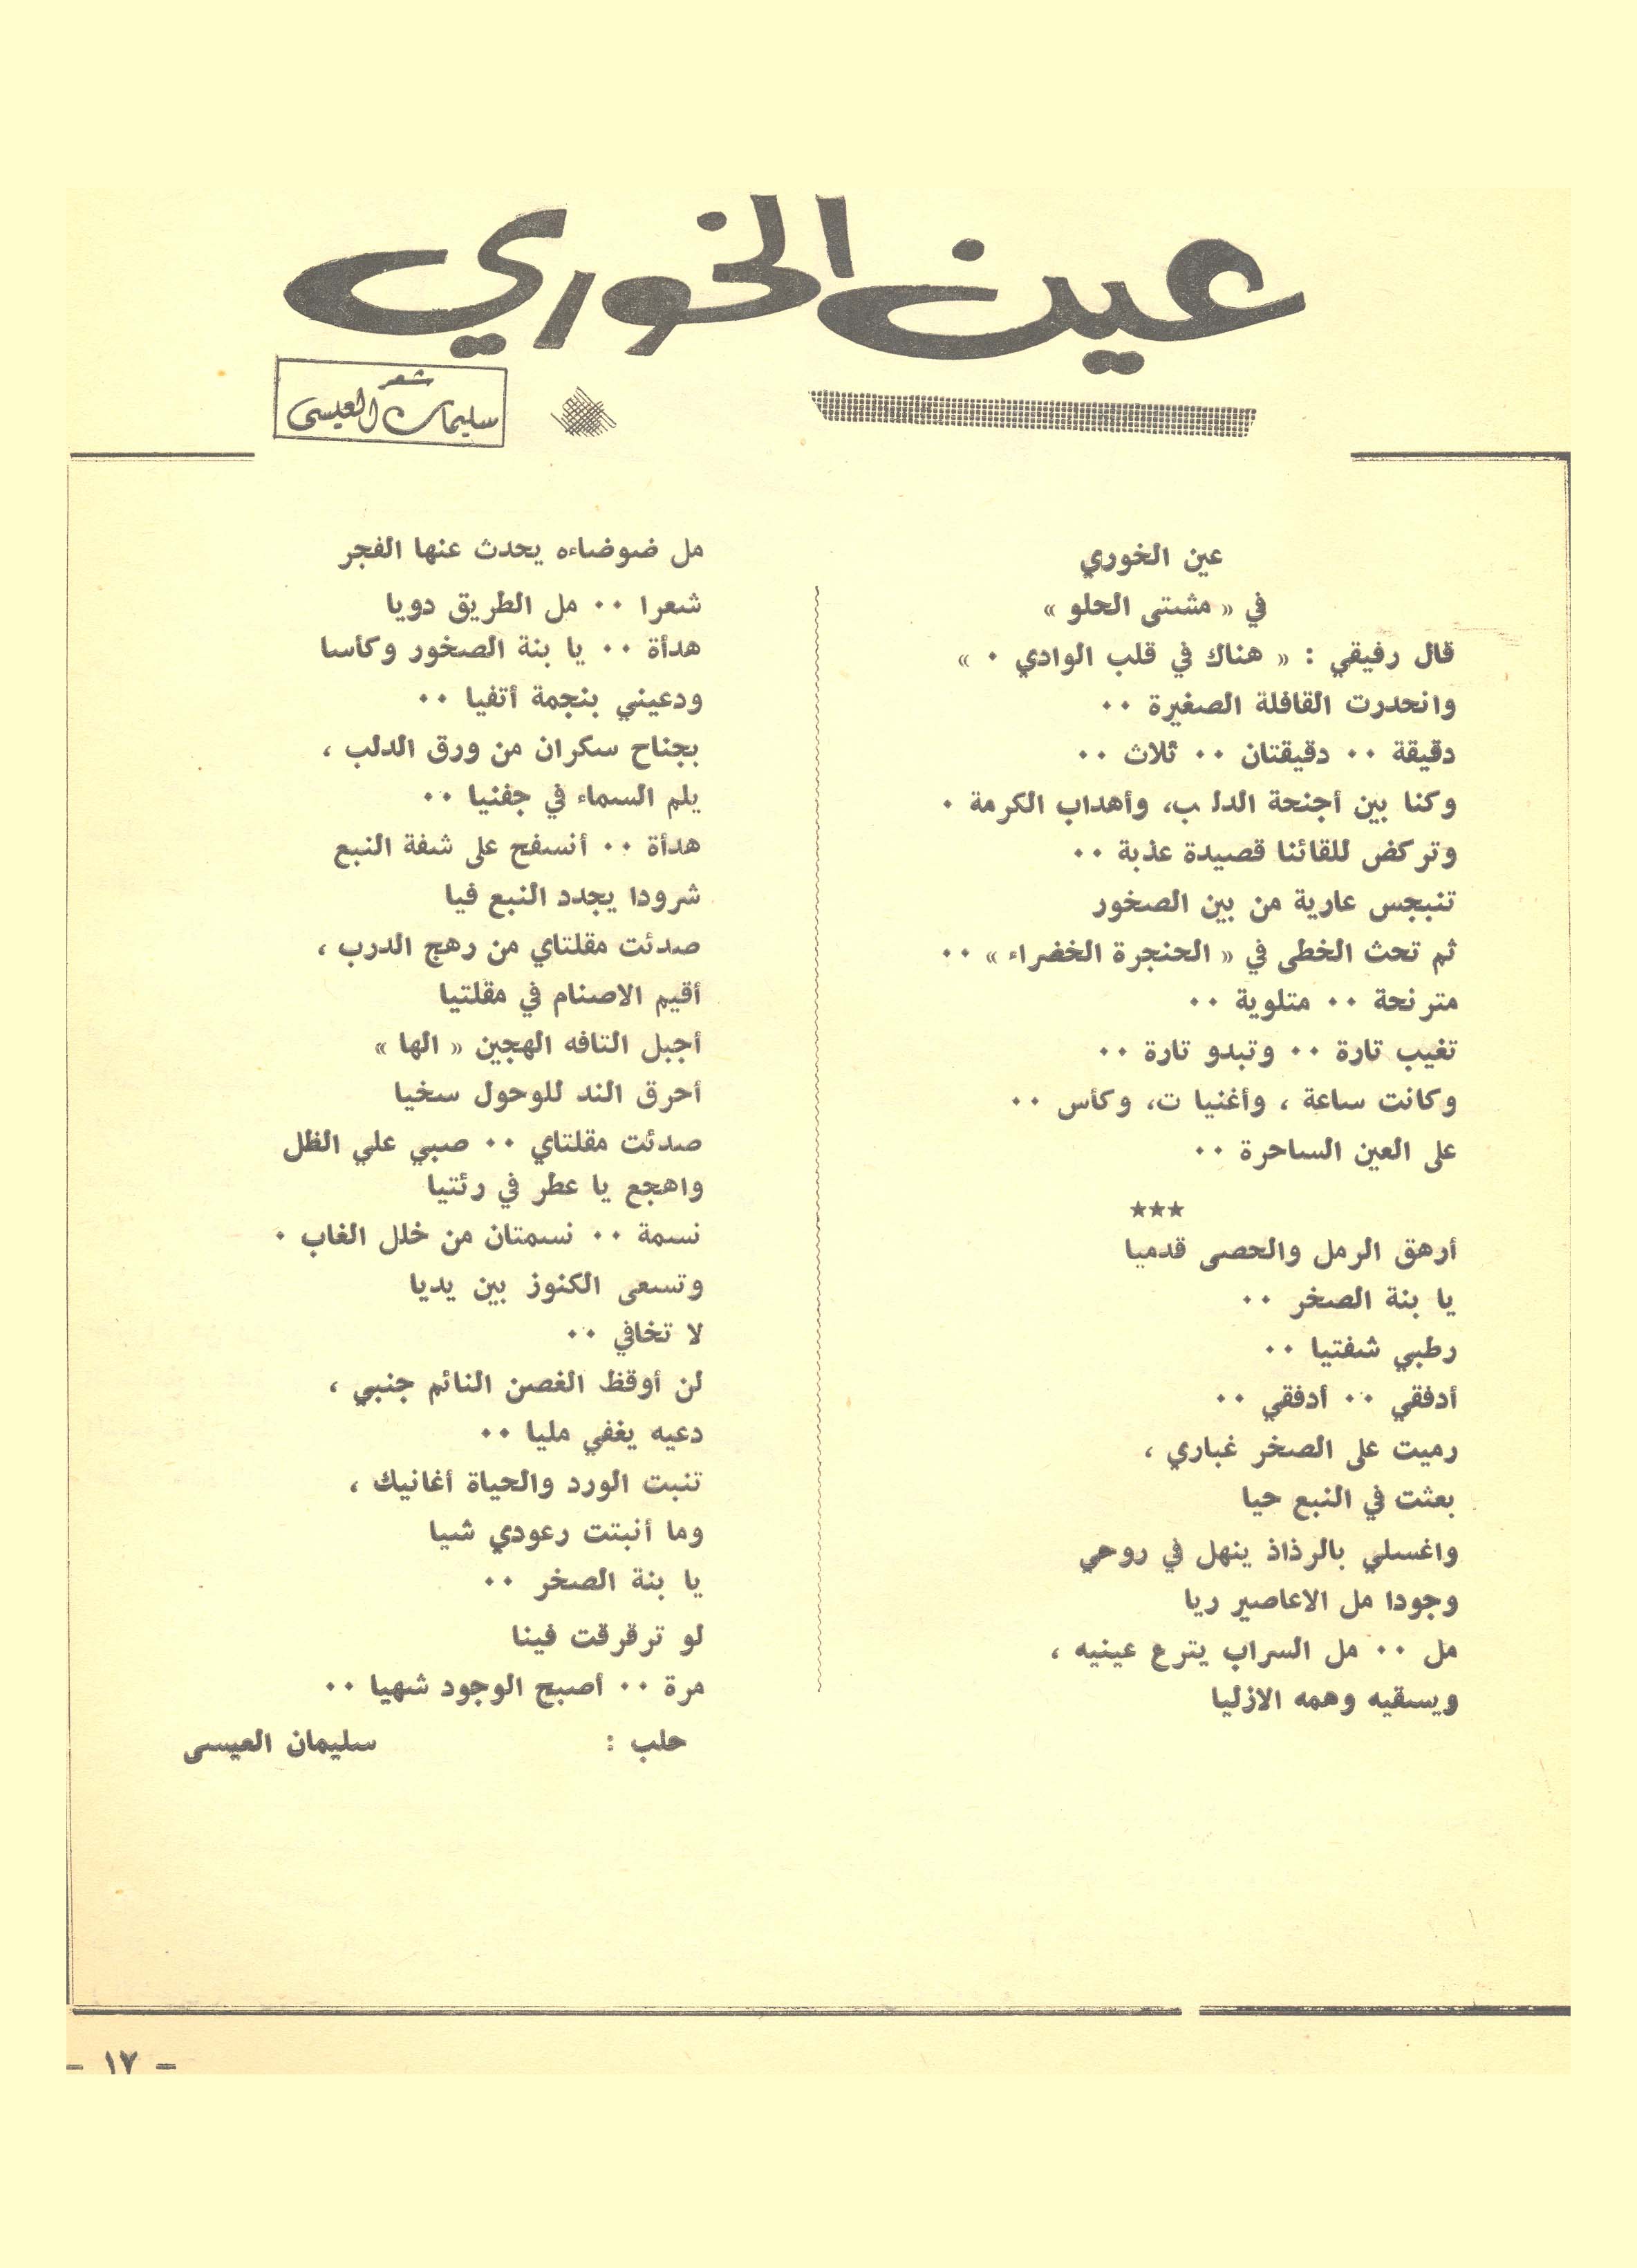 عين الخوري
شعر
سليمان العيسى
عين الخوري
في « مشتى الحلو »
قال رفيقي : « هناك في قلب الوادي ٠ »
وانحدرت القافلة الصغيرة ٠٠
دقيقة ٠٠ دقيقتان ٠٠ ثلاث ٠٠
وكنا بين أجنحة الدلب، وأهداب الكرمة ٠
وتركض للقائنا قصيدة عذبة ٠٠
تنبجس عارية من بين الصخور
ثم تحث الخطى في « الحنجرة الخضراء » ٠٠
مترنحة ٠٠ متلوية ٠٠
تغيب تارة ٠٠ وتبدو تارة ٠٠
وكانت ساعة ، وأغنيات، وكأس ٠٠
على العين الساحرة ٠٠
★★★
أرهق الرمل والحصى قدميا
يا بنة الصخر ٠٠
رطبي شفتيا ٠٠
أدفقي ٠٠ أدفقي ٠٠
رميت على الصخر غباري ،
بعثت في النبع حيا
واغسلي بالرذاذ ينهل في روحي
وجودا مل الاعاصير ريا
مل ٠٠ مل السراب يترع عينيه ،
ويسقيه وهمه الازليا
مل ضوضاءه يحدث عنها الفجر
شعرا ٠٠ مل الطريق دويا
هدأة ٠٠ يا بنة الصخور وكأسا
ودعيني بنجمة أتفيا ٠٠
بجناح سكران من ورق الدلب ،
يلم السماء في جفنيا ٠٠
هدأة ٠٠ أنسفح على شفة النبع
شرودا يجدد النبع فيا
صدئت مقلتاي من رهج الدرب ،
أقيم الاصنام في مقلتيا
أجبل التافه الهجين « الها »
أحرق الند للوحول سخيا
صدئت مقلتاي ٠٠ صبي علي الظل
واهجع يا عطر في رئتيا
نسمة ٠٠ نسمتان من خلل الغاب ٠
وتسعى الكنوز بين يديا
لا تخافي ٠٠
لن أوقظ الغصن النائم جنبي ،
دعيه يغفي مليا ٠٠
تنبت الورد والحياة أغانيك ،
وما أنبتت رعودي شيا
يا بنة الصخر ٠٠
لو ترقرقت فينا
مرة ٠٠ أصبح الوجود شهيا ٠٠
حلب : سليمان العيسى
- ١٧ -